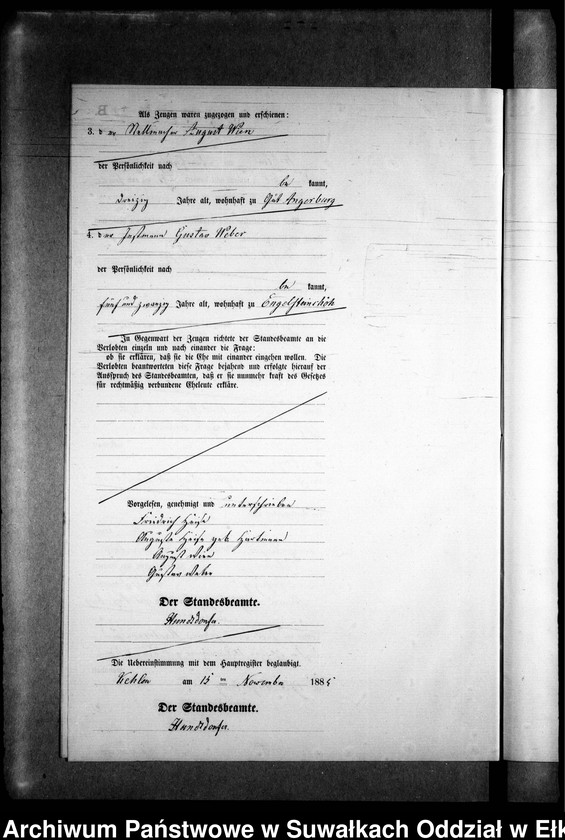 Als Zeugen waren zugezogen und erschienen:
3. der Stellmacher August Wien
der Persönlichkeit nach
be kannt,
dreizig Jahre alt, wohnhaft zu Gut Angerburg
4. der Instmann Gustav Weber
der Persönlichkeit nach
be kannt,
fünf und zwanzig Jahre alt, wohnhaft zu
In Gegenwart der Zeugen richtete der Standesbeamte an die
Verlobten einzeln und nach einander die Frage:
ob sie erklären, daß sie die Ehe mit einander eingehen wollen. Die
Verlobten beantworteten diese Frage bejahend und erfolgte hierauf der
Ausspruch des Standesbeamten, daß er sie nunmehr kraft des Gesetzes
für rechtmäßig verbundene Eheleute erkläre.
Vorgelesen, genehmigt und unterschrieben
Friedrich Heise
Auguste Heise geb. Hartmann
August Wien
Gustav Weber
Der Standesbeamte.
Hundsdorfer.
Die Uebereinstimmung mit dem Hauptregister beglaubigt.
am 15 ten November 1885
Der Standesbeamte.
Hundsdorfer.
Archiwum Państwowe w Suwałkach Oddział w Ełk